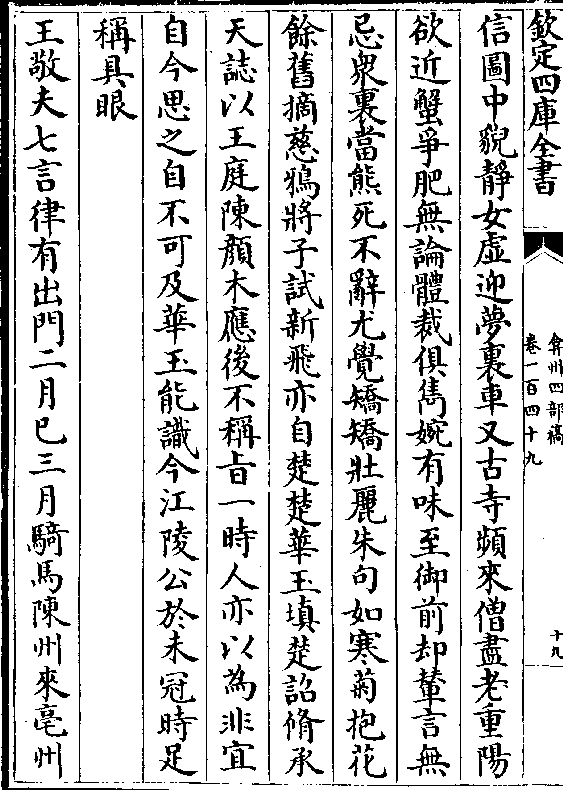 欽定四庫全書
弇州四部稿
卷一百四十九
十九
信圖中貌靜女虛迎夢裏車又古寺頻來僧盡老重陽
欲近蟹爭肥無論體裁俱雋婉有味至御前却輦言無
忌衆裏當熊死不辭尤覺矯矯壯麗朱句如寒菊抱花
餘舊摘慈鴉將子試新飛亦自楚楚華玉填楚詔脩承
天誌以王庭陳顔木應後不稱旨一時人亦以為非宜
自今思之自不可及華玉能識今江陵公於未冠時足
稱具眼
王敬夫七言律有出門二月已三月騎馬陳州來亳州